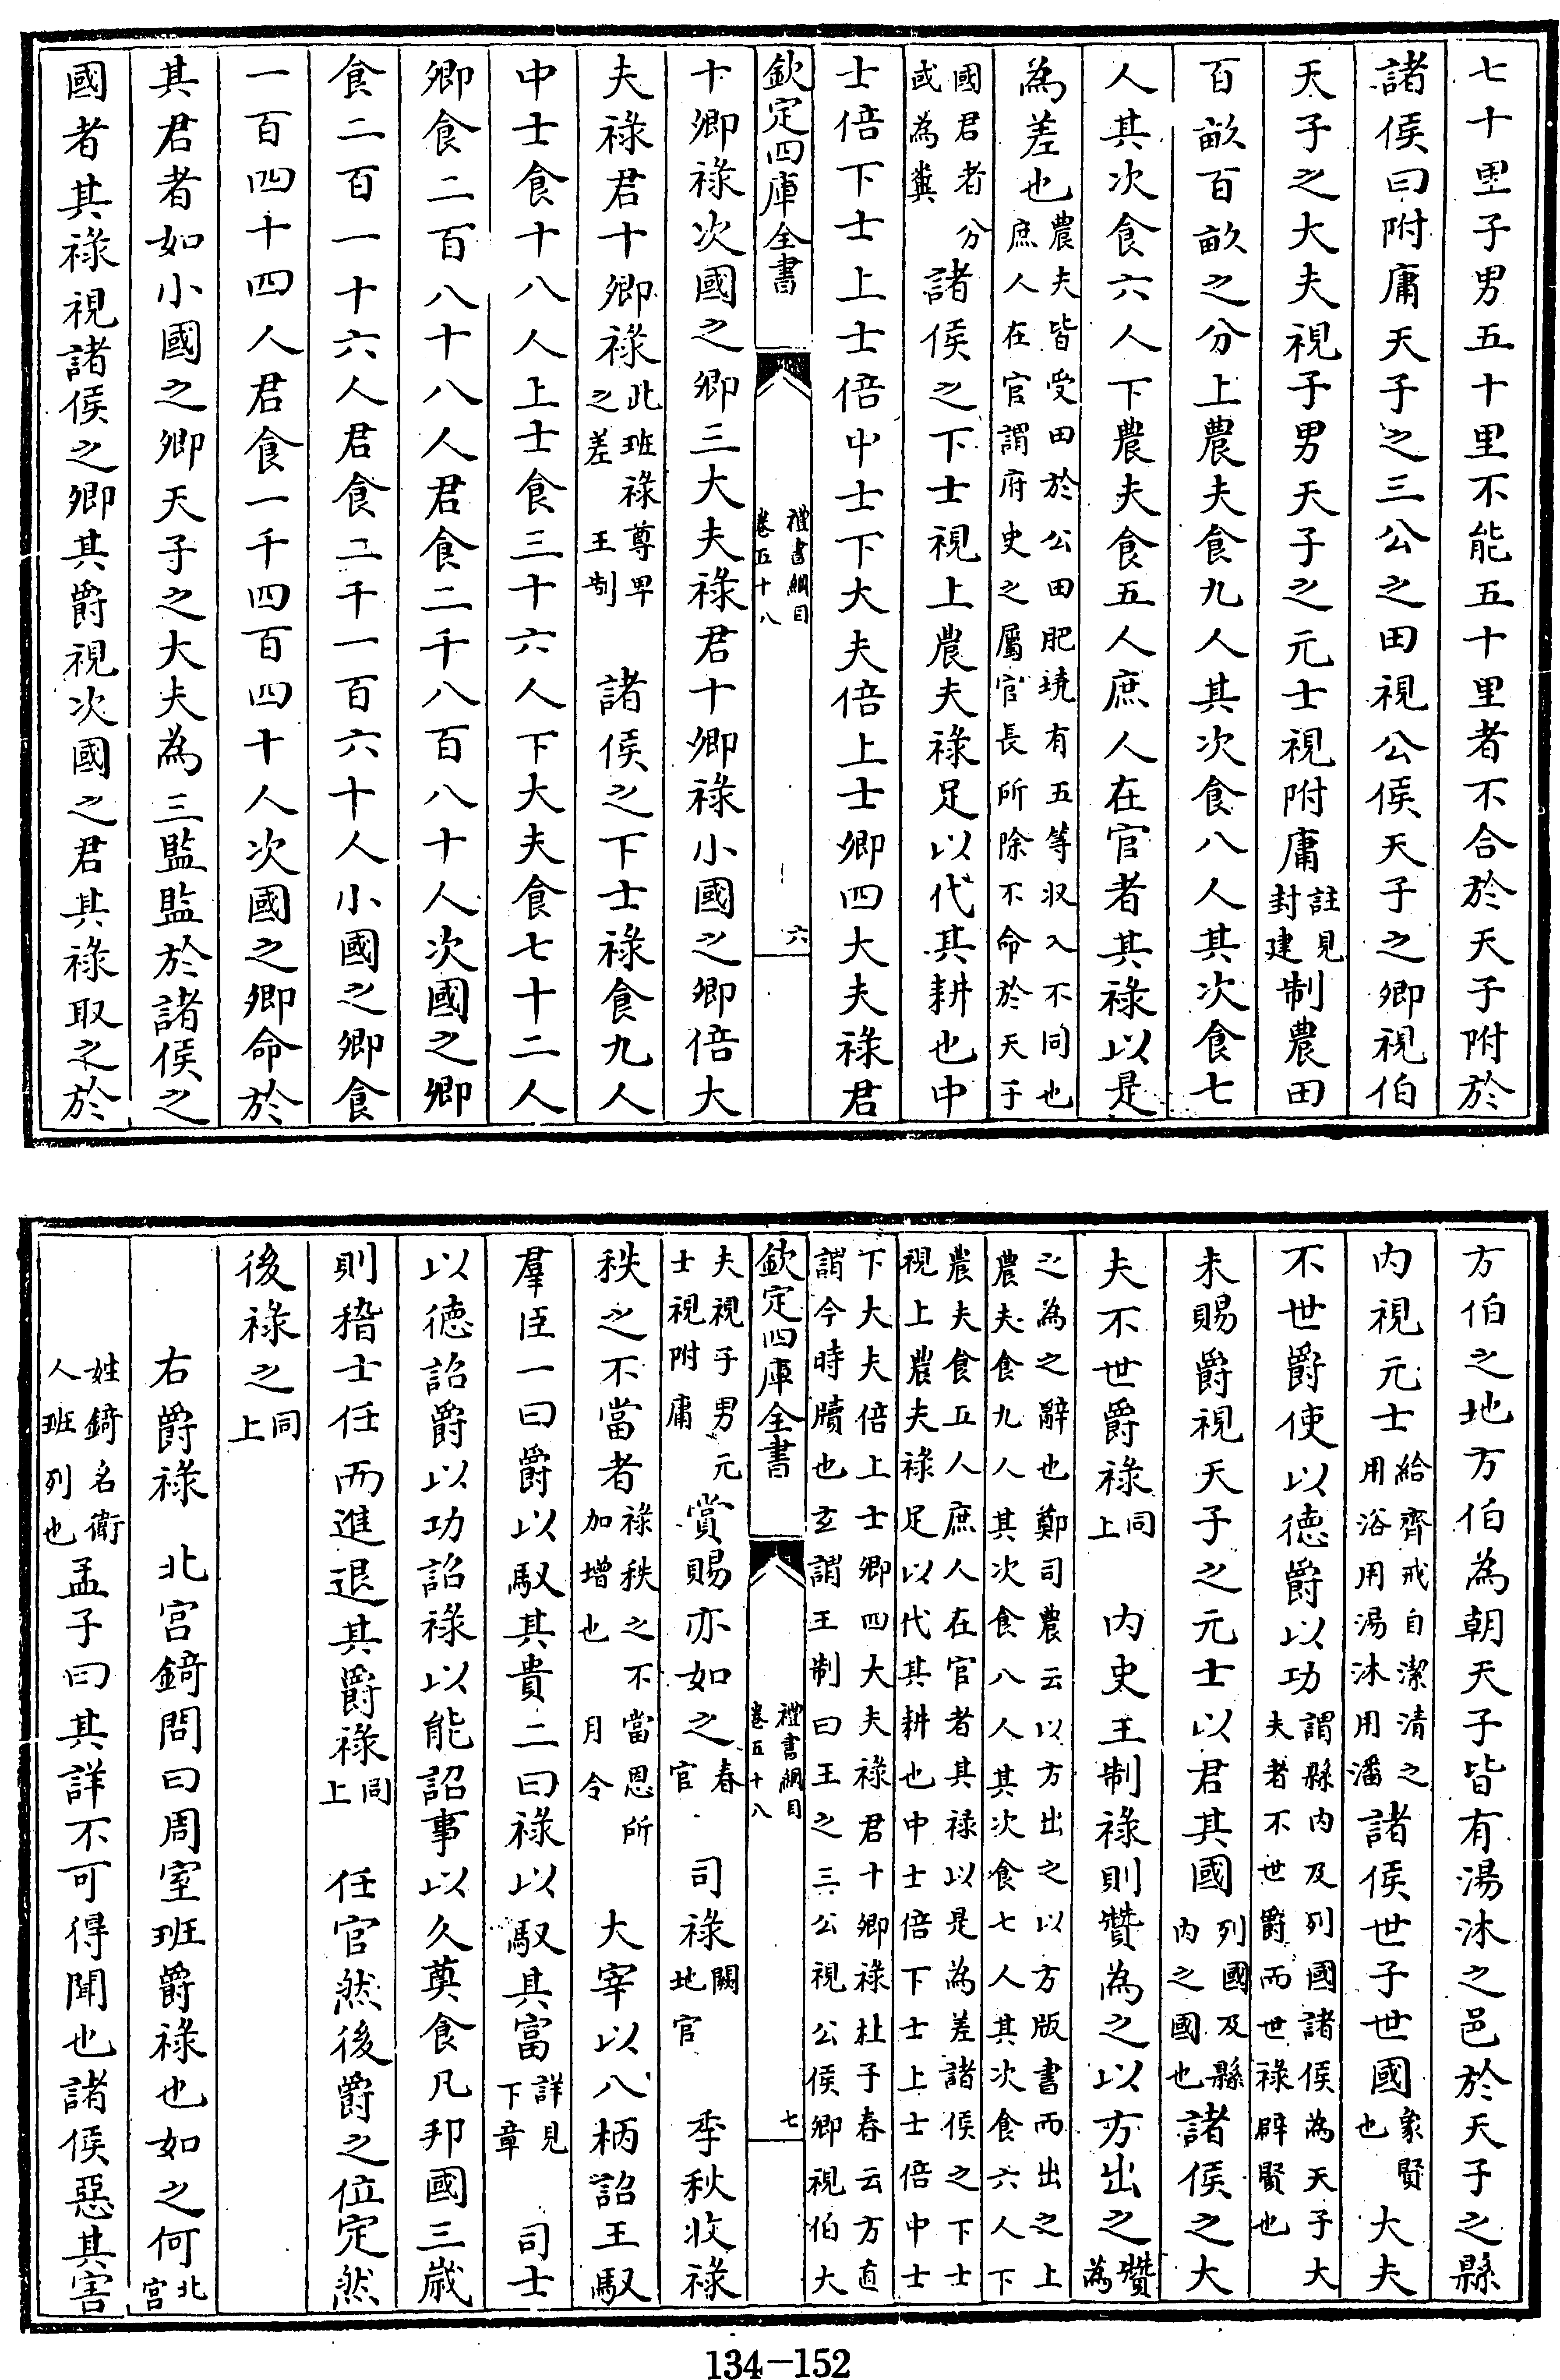 七十里子男五十里不能五十里者不合於天子附於
諸侯曰附庸天子之三公之田視公侯天子之卿視伯
天子之大夫視子男天子之元士視附庸註見封建制農田
百畝百畝之分上農夫食九人其次食八人其次食七
人其次食六人下農夫食五人庶人在官者其祿以是
為差也農夫皆受田於公田肥墝有五等收入不同也庶人在官謂府史之屬官長所除不命於天子
國君者分或為糞諸侯之下士視上農夫祿足以代其耕也中
士倍下士上士倍中士下大夫倍上士卿四大夫祿君
欽定四庫全書
禮書綱目
卷五十八
六
十卿祿次國之卿三大夫祿君十卿祿小國之卿倍大
夫祿君十卿祿此班祿尊卑之差王制 諸侯之下士祿食九人
中士食十八人上士食三十六人下大夫食七十二人
卿食二百八十八人君食二千八百八十人次國之卿
食二百一十六人君食二千一百六十人小國之卿食
一百四十四人君食一千四百四十人次國之卿命於
其君者如小國之卿天子之大夫為三監監於諸侯之
國者其祿視諸侯之卿其爵視次國之君其祿取之於
方伯之地方伯為朝天子皆有湯沐之邑於天子之縣
內視元士給齊戒自潔清之用浴用湯沐用潘諸侯世子世國象賢也大夫
不世爵使以德爵以功謂縣內及列國諸侯為天子大夫者不世爵而世祿辟賢也
未賜爵視天子之元士以君其國列國及縣內之國也諸侯之大
夫不世爵祿同上 內史王制祿則贊為之以方出之贊為
之為之辭也鄭司農云以方出之以方版書而出之上農夫食九人其次食八人其次食七人其次食六人下
農夫食五人庶人在官者其祿以是為差諸侯之下士視上農夫祿足以代其耕也中士倍下士上士倍中士
下大夫倍上士卿四大夫祿君十卿祿杜子春云方直謂今時牘也玄謂王制曰王之三公視公侯卿視伯大
欽定四庫全書
禮書綱目
卷五十八
七
夫視子男元士視附庸賞賜亦如之春官 司祿闕地官 季秋收祿
秩之不當者祿秩之不當恩所加增也月令 大宰以八柄詔王馭
羣臣一曰爵以馭其貴二曰祿以馭其富詳見下章 司士
以德詔爵以功詔祿以能詔事以久奠食凡邦國三歲
則稽士任而進退其爵祿同上 任官然後爵之位定然
後祿之同上
右爵祿 北宮錡問曰周室班爵祿也如之何北宮
姓錡名衛人班列也孟子曰其詳不可得聞也諸侯惡其害
134-152